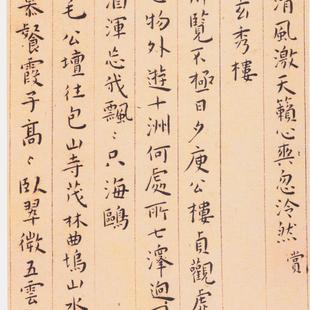 清風激天籟心爽忽泠然 賞
玄秀樓
覽不極日夕庾公樓貞觀虛
物外遊十洲何處所七澤迥
酒渾忘我飄〻只海鷗
毛公壇往包山寺茂林曲塢山水
慕餐霞子高〻臥翠微五雲